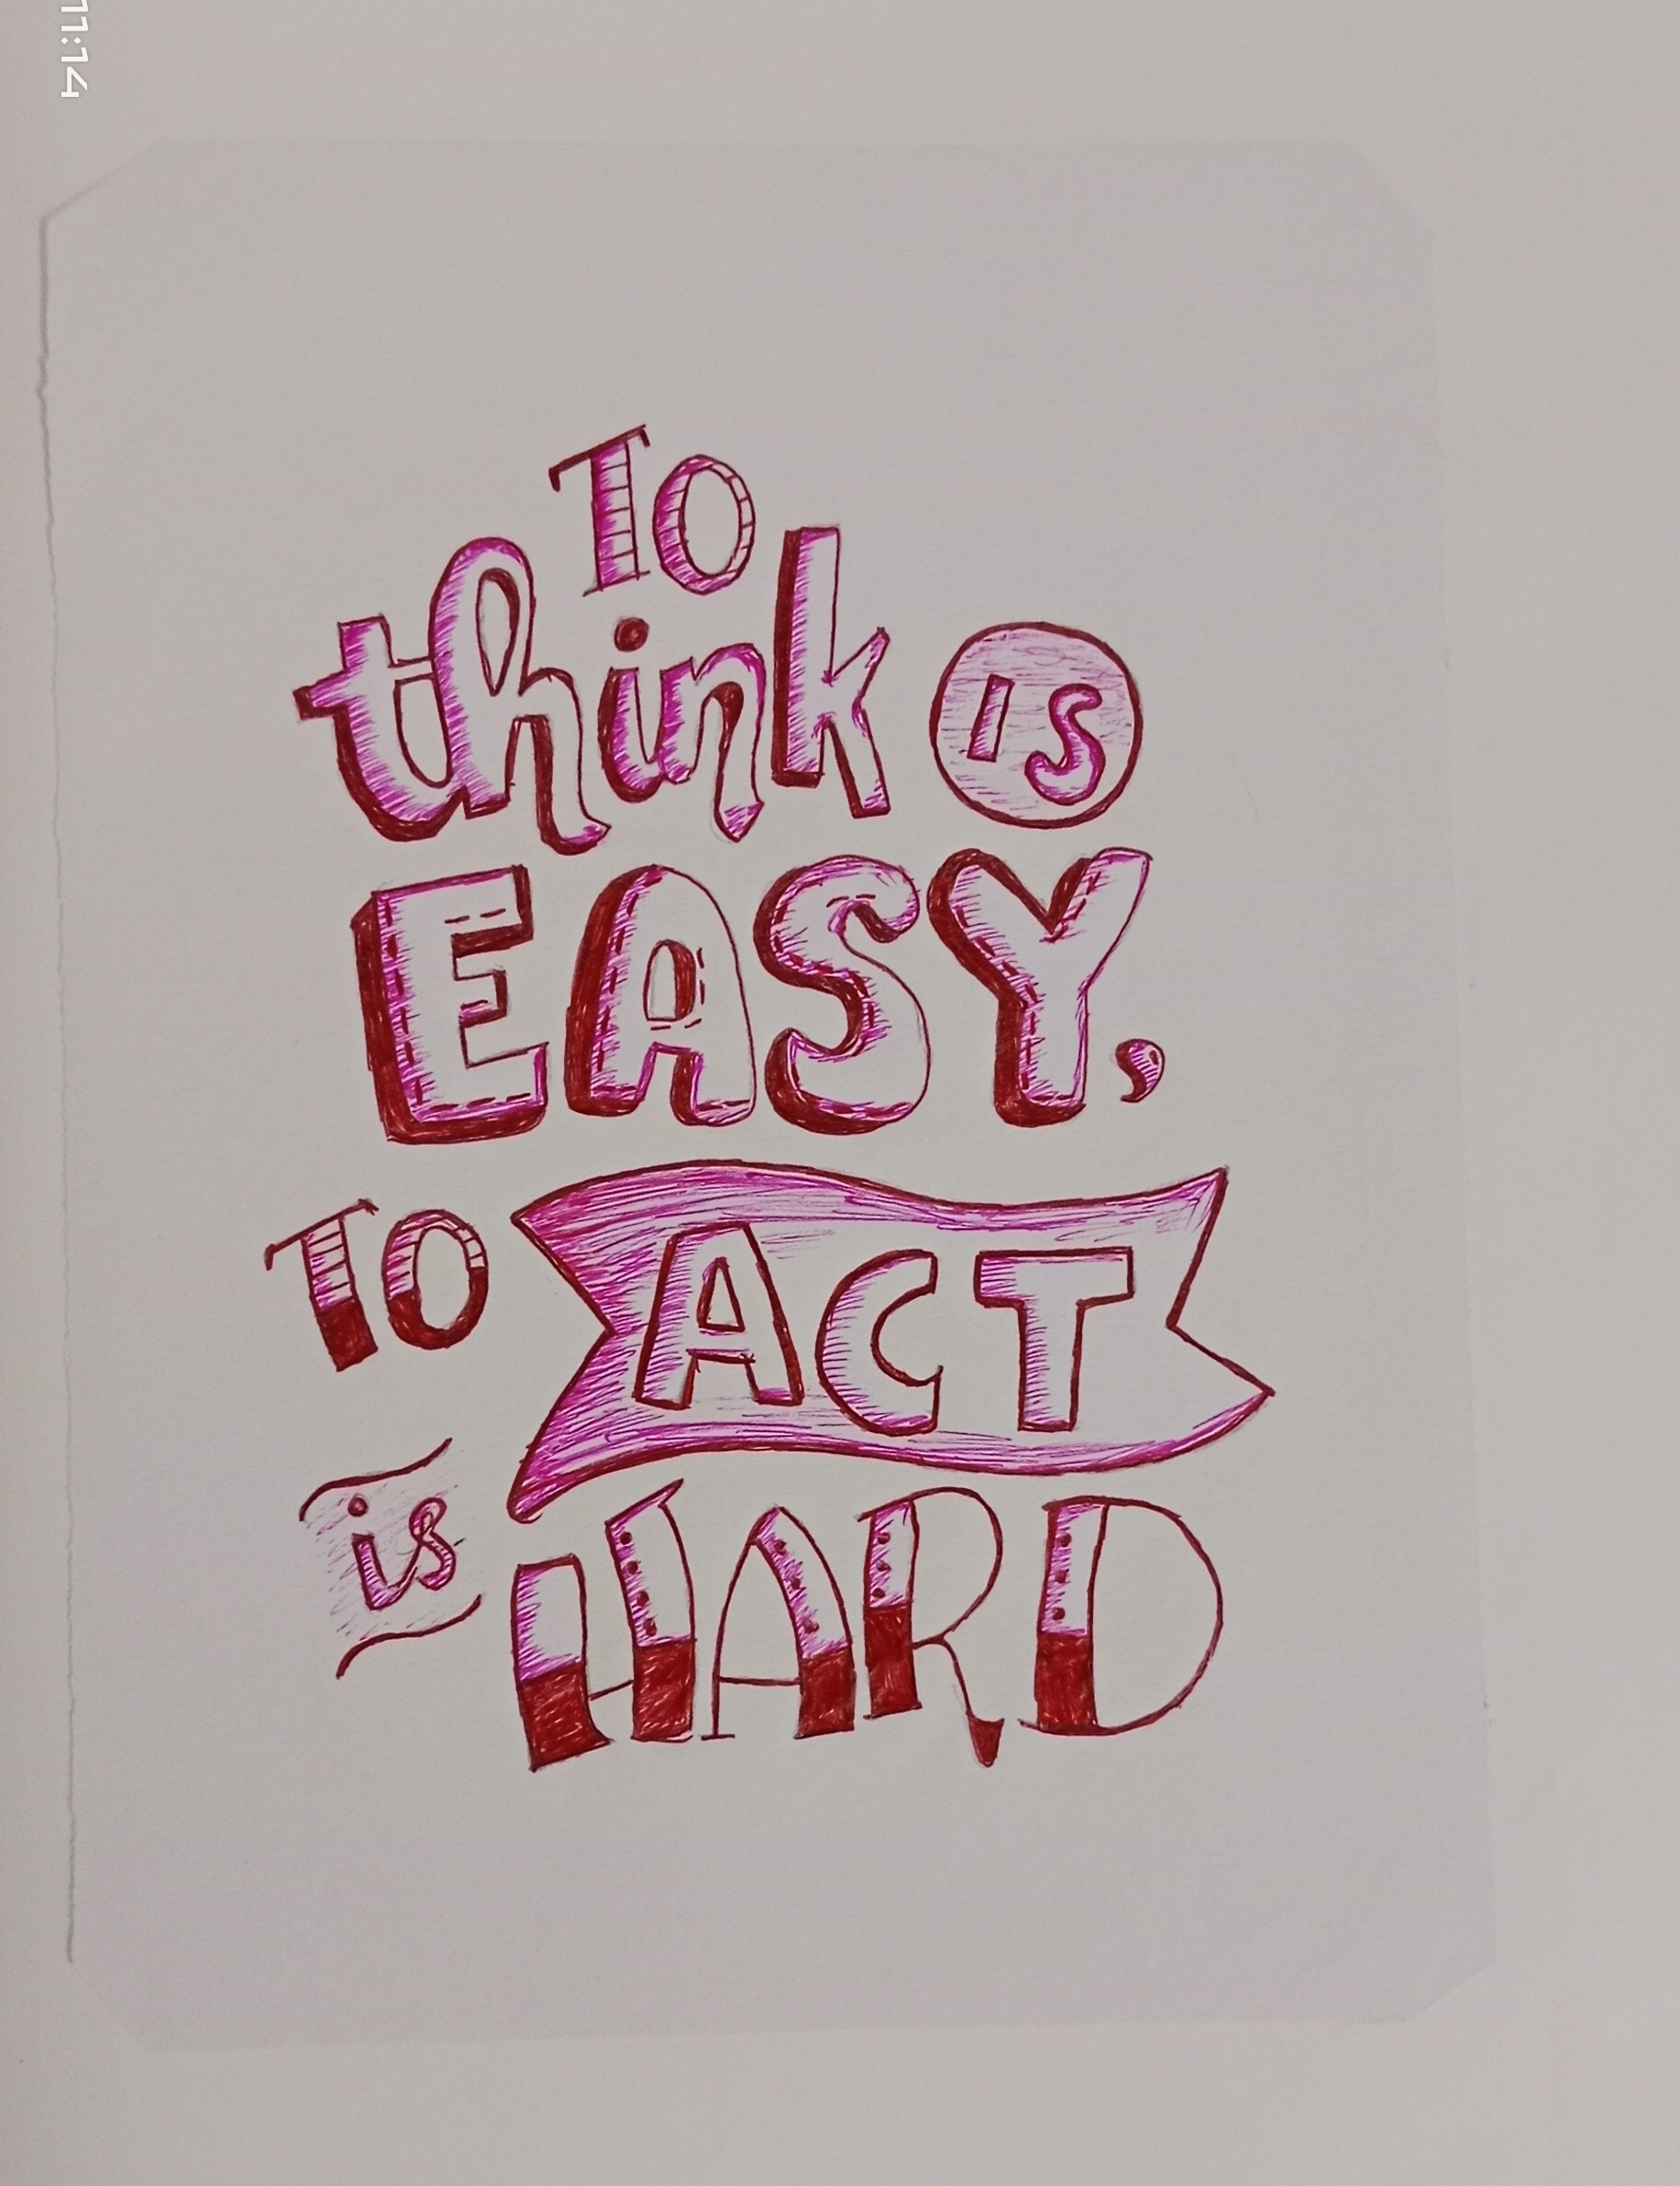 11:14
To
think IS
EASY,
TO ACT
is HARD